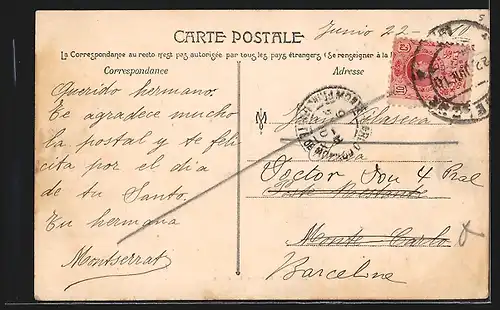 Junio 22-
CARTE POSTALE
La Correspondance au recto n'est pas autorisée par tous les pays étrangers (Se renseigner à la
Correspondance
Adresse
Querido hermano.
Te agradece mucho
la postal y te feli
cita por el dia
de tu Santo.
Tu hermana
Montserrat
Vilaseca
Pral
Poste Restante
Monte-Carlo
Barcelone